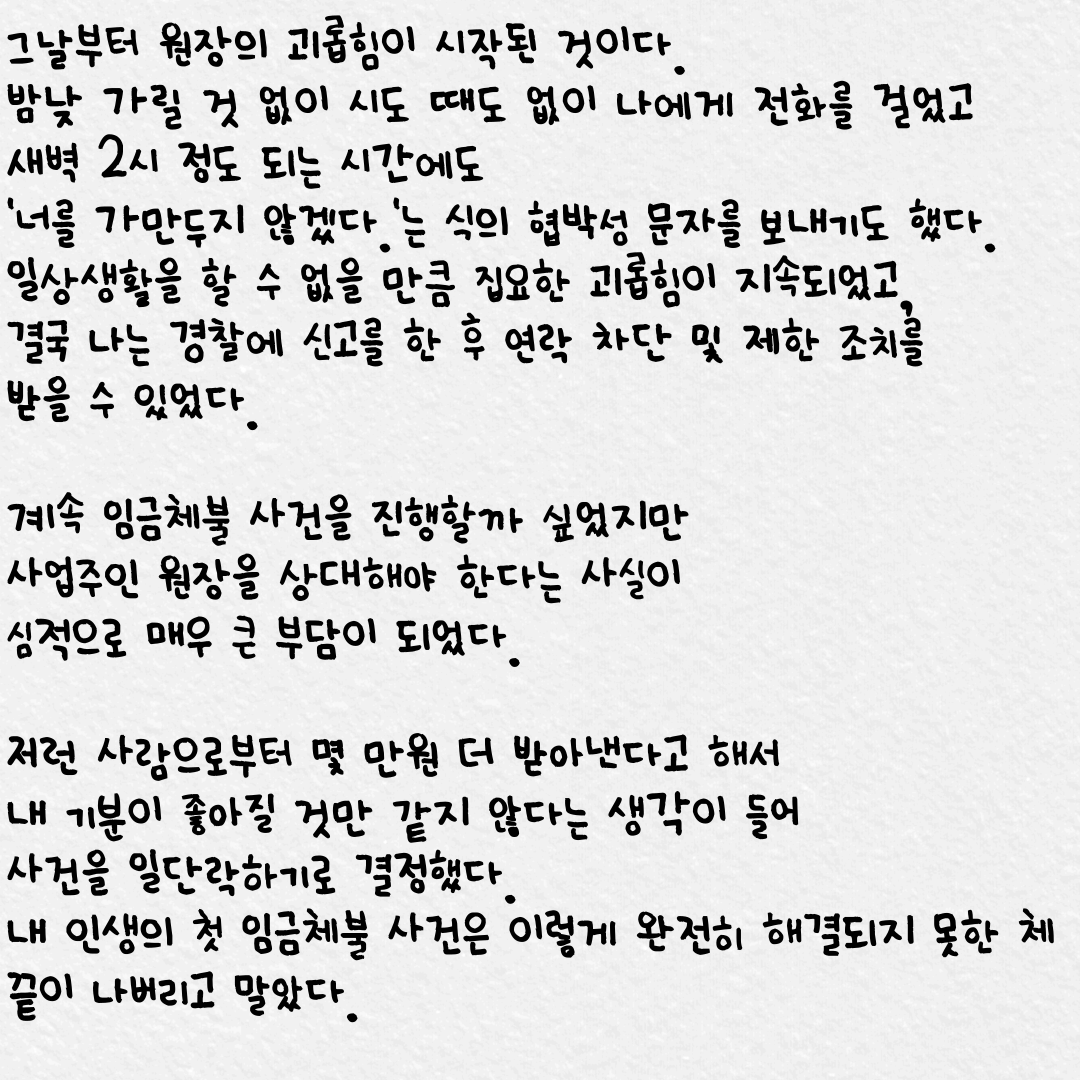 그날부터 원장의 괴롭힘이 시작된 것이다.
밤낮 가릴 것 없이 시도 때도 없이 나에게 전화를 걸었고
새벽 2시 정도 되는 시간에도
'너를 가만두지 않겠다.'는 식의 협박성 문자를 보내기도 했다.
일상생활을 할 수 없을 만큼 집요한 괴롭힘이 지속되었고,
결국 나는 경찰에 신고를 한 후 연락 차단 및 제한 조치를
받을 수 있었다.
계속 임금체불 사건을 진행할까 싶었지만
사업주인 원장을 상대해야 한다는 사실이
심적으로 매우 큰 부담이 되었다.
저런 사람으로부터 몇 만원 더 받아낸다고 해서
내 기분이 좋아질 것만 같지 않다는 생각이 들어
사건을 일단락하기로 결정했다.
내 인생의 첫 임금체불 사건은 이렇게 완전히 해결되지 못한 체
끝이 나버리고 말았다.